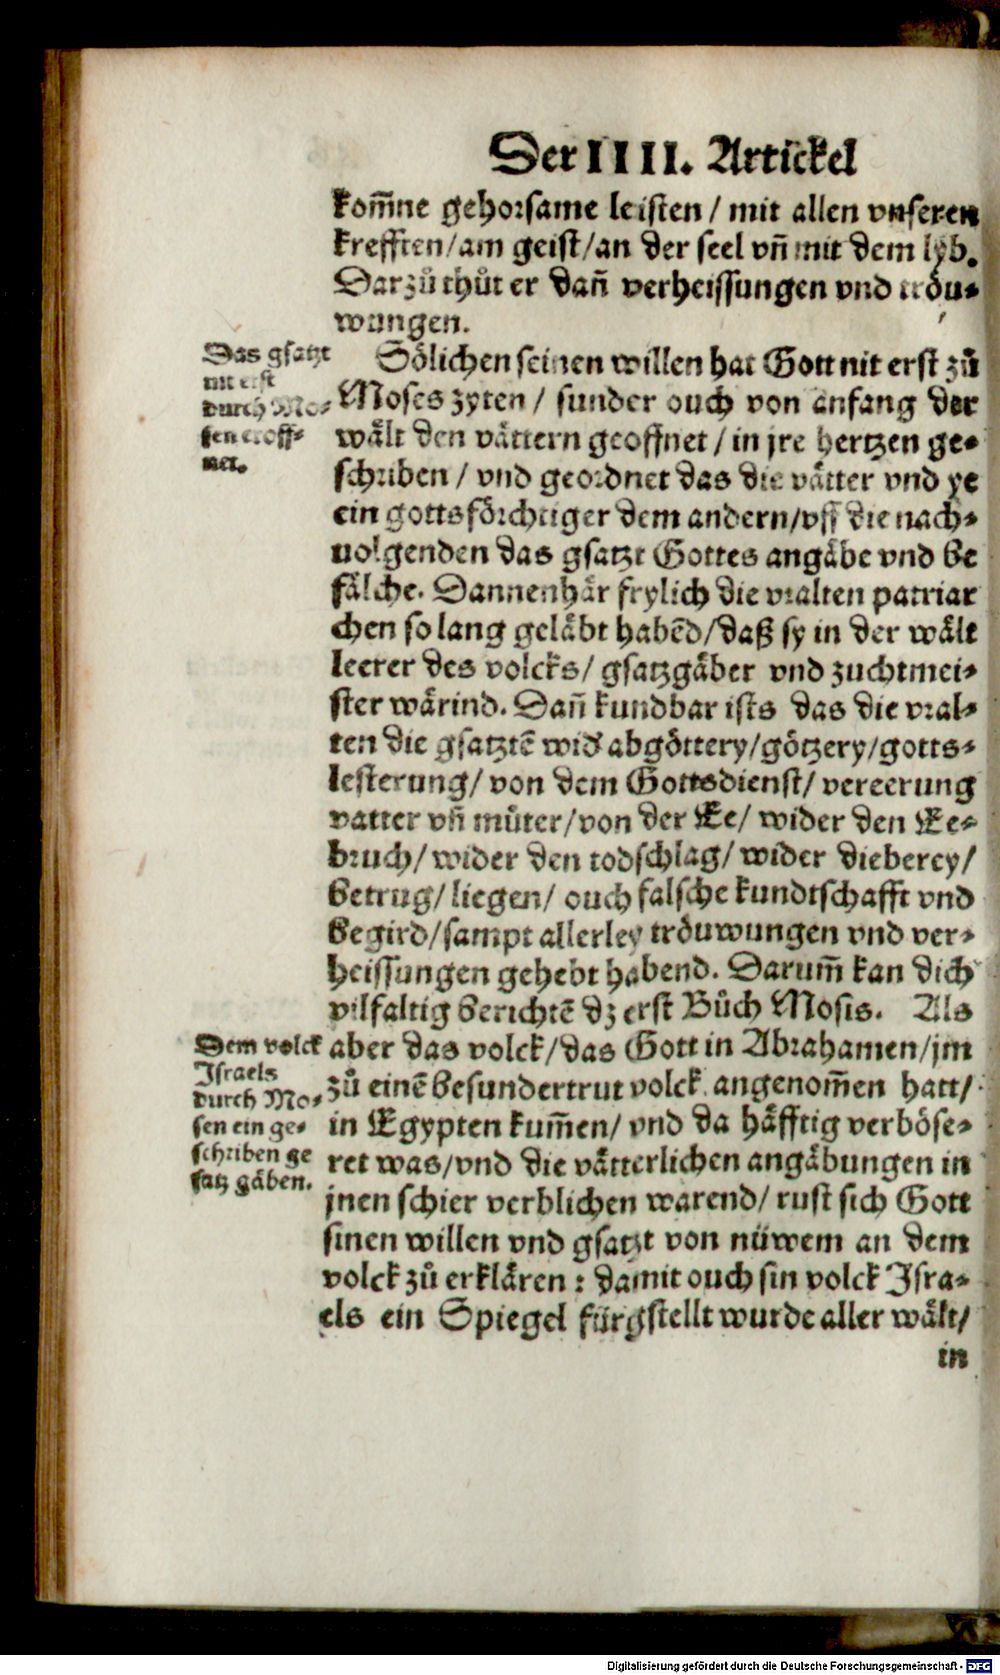 Der IIII. Artickel
kom̃ne gehorsame leisten / mit allen vnseren
krefften/am geist/an der seel vñ mit dem lyb.
Darzů thůt er dañ verheissungen vnd tröu-
wungen.
Das gsatzt
nit erst
durch Mo-
sen eroff-
net.
Sölichen seinen willen hat Gott nit erst zů
Moses zyten / sunder ouch von anfang der
wält den vättern geoffnet / in jre hertzen ge-
schriben / vnd geordnet das die vätter vnd ye
ein gottsförchtiger dem andern/vff die nach-
uolgenden das gsatzt Gottes angäbe vnd be
fälche. Dannenhär frylich die vralten patriar
chen so lang geläbt habẽd/daß sy in der wält
leerer des volcks/ gsatzgäber vnd zuchtmei-
ster wärind. Dañ kundbar ists das die vral-
ten die gsatztẽ wid̕ abgöttery/götzery/gotts-
lesterung/ von dem Gottsdienst/ vereerung
vatter vñ můter/von der Ee/ wider den Ee-
bruch/ wider den todschlag/ wider dieberey/
betrug/ liegen/ ouch falsche kundtschafft vnd
begird/sampt allerley tröuwungen vnd ver-
heissungen gehebt habend. Darum̃ kan dich
vilfaltig berichtẽ dz erst Bůch Mosis. Als
Dem volck
Israels
durch Mo-
sen ein ge-
schriben ge
satz gäben.
aber das volck/das Gott in Abrahamen/jm
zů einẽ besundertrut volck angenom̃en hatt/
in Egypten kum̃en/ vnd da häfftig verböse-
ret was/vnd die vätterlichen angäbungen in
jnen schier verblichen warend/ rust sich Gott
sinen willen vnd gsatzt von nüwem an dem
volck zů erklären : damit ouch sin volck Isra-
els ein Spiegel fürgstellt wurde aller wält/
in
Digitalisierung gefördert durch die Deutsche Forschungsgemeinschaft - DFG